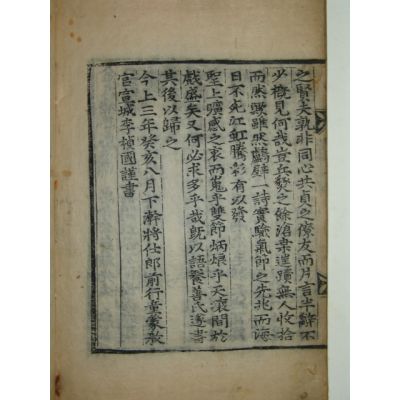 之賢夫孰非同心共貞之僚友而片言半辭不
少槪見何哉豈兵燹之餘淪棄遺蹟無人收拾
而然歟雖然壁一詩實驗氣節之先兆而海
日不死紅虹騰彩有以發
聖上曠感之衷而嵬乎雙節炳烺乎天壤間於
戱盛矣又何必求多乎哉旣以語養善氏遂書
其後以歸之
今上三年癸亥八月下澣將仕郎前行童蒙敎
官宣城李楨國謹書